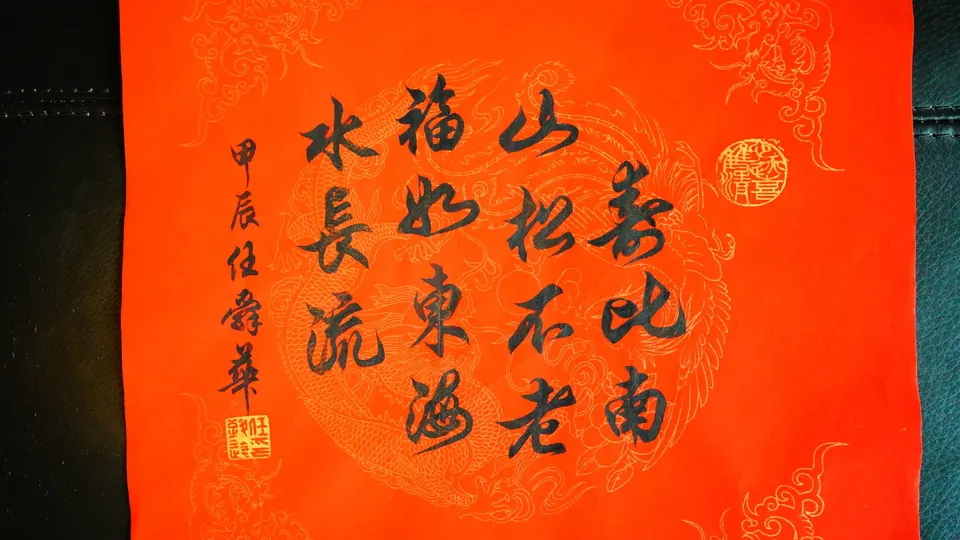 壽比南
山松不老
福如東海
水長流
甲辰任舜華